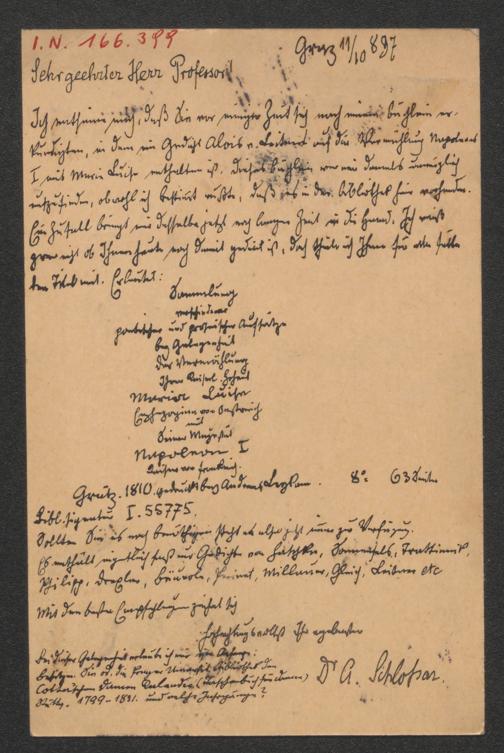 I.N. 166.399
Graz 11/10 897
Sehrgeehrter Herr Professor!
Ich entsinne mich, daß Sie vor einiger Zeit sich nach einem Büchlein er-
kundigten, in dem ein Gedicht Alois v. Leitner auf die Vermählung Napoleons
I mit Maria Luise enthalten ist. Dieses Büchlein war mir damals unmöglich
aufzufinden, obwohl ich bestimmt wußte, daß es in der Bibliothek hier vorhanden.
Ein Zufall bringt mir dasselbe jetzt nach langer Zeit in die Hand. Ich weiß
zwar nicht ob Ihnen heute noch damit gedient ist, doch theile ich Ihnen für alle Fälle
den Titel mit. Er lautet:
Sammlung
verschiedener
poetischer und prosaischer Aufsätze
bey Gelegenheit
der Vermählung
Ihrer Kaiserl. Hoheit
Maria Luise
Erzherzoginn von Oesterreich
mit
Seiner Majestät
Napoleon I
Kaiser von Frankreich.
Gratz. 1810, gedruckt bey Andreas Leykam. 8° 63 Seiten
Bibl. Signatur I. 55775.
Sollten Sie es noch benöthigen steht es also jetzt immer zur Verfügung.
Es enthält eigentlich fast nur Gedichte von Haschka, Sonnenfels, Trattinnik,
Philipp, Drexler, Millauer, Gleich, Leitner etc
Mit den besten Empfehlungen zeichnet sich
hochachtungsvollst Ihr ergebenster
Dr A. Schlossar.
Bei dieser Gelegenheit erlaube ich mir eine Anfrage:
Besitzen Sie od. die Universit. Bibliothek den
Cotta'schen Damen Kalender (Taschenbuch für Damen)
1799–1831. und welche Jahrgänge?